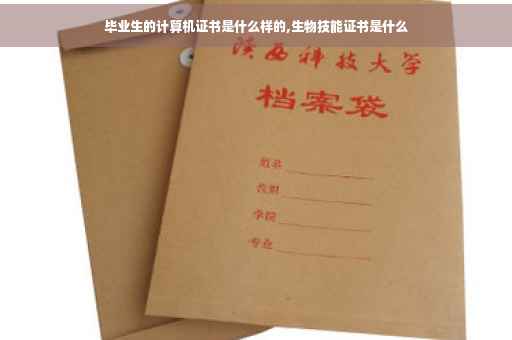 毕业生的计算机证书是什么样的,生物技能证书是什么
陕西科技大学
档案袋
姓名
学院
专业